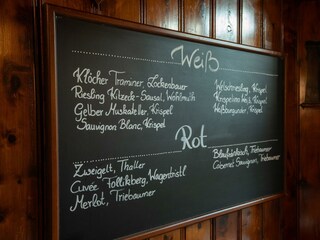 Weiß
Klöcher Traminer, Zöckenbauer
Riesling Kitzeck-Sausal, Wohlmuth
Gelber Muskateller, Krispel
Sauvignon Blanc, Krispel
Welschriesling, Krispel
Weißburgunder, Krispel
Rot
Zweigelt, Thaller
Cuvée Follikberg, Wagentristl
Merlot, Triebaumer
Blaufränkisch, Triebaumer
Cabernet Sauvignon, Triebaumer